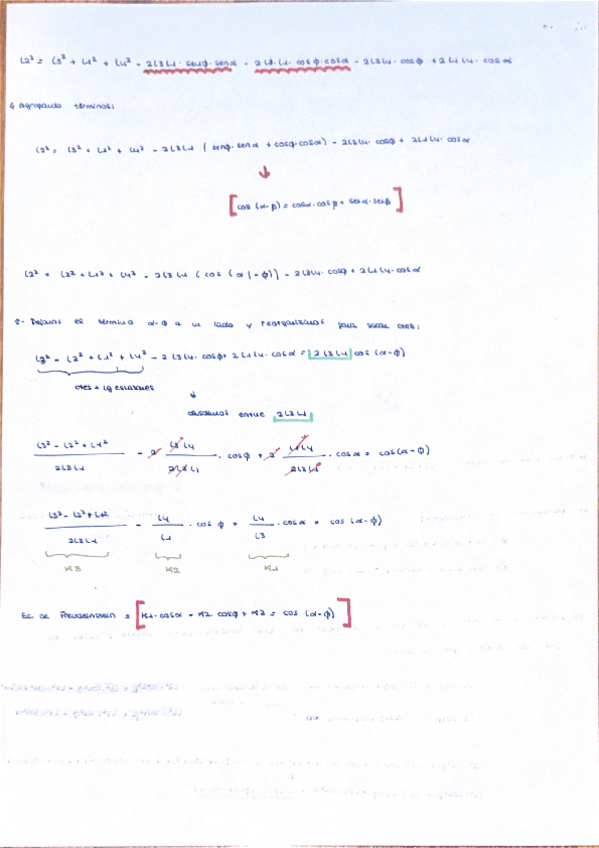 L2² = L3² + L1² + L4² - 2L3L1· senϕ·senα - 2L3·L1· cosϕ·cosα - 2L3L4· cosϕ + 2L1L4· cosα
4 Agrupando términos:
L2² = L3² + L1² + L4² - 2L3L1 (senϕ·senα + cosϕ·cosα) - 2L3L4· cosϕ + 2L1L4· cosα
↓
[cos (α-β) = cosα·cosβ + senα·senβ]
L2² = L3² + L1² + L4² - 2L3L1 (cos (α-ϕ)) - 2L3L4· cosϕ + 2L1L4·cosα
5- Dejamos el término α-ϕ a un lado y reorganizamos para sacar ctes:
L3² - L2² + L1² + L4² - 2L3L4·cosϕ + 2L1L4·cosα = 2L3L1 cos (α-ϕ)
ctes + lg eslabones
↓
dividimos entre 2L3L1
L3² - L2² + L1² / 2L3L1 - 2 L3L4 / 2L3L1 · cosϕ + 2 L1L4 / 2L3L1 · cosα = cos(α-ϕ)
L3² - L2² + L1² / 2L3L1 - L4 / L1 · cosϕ + L4 / L3 · cosα = cos (α-ϕ)
K3 K2 K1
Ec. de Freudenstein = [K1·cosα - K2 cosϕ + K3 = cos (α-ϕ)]